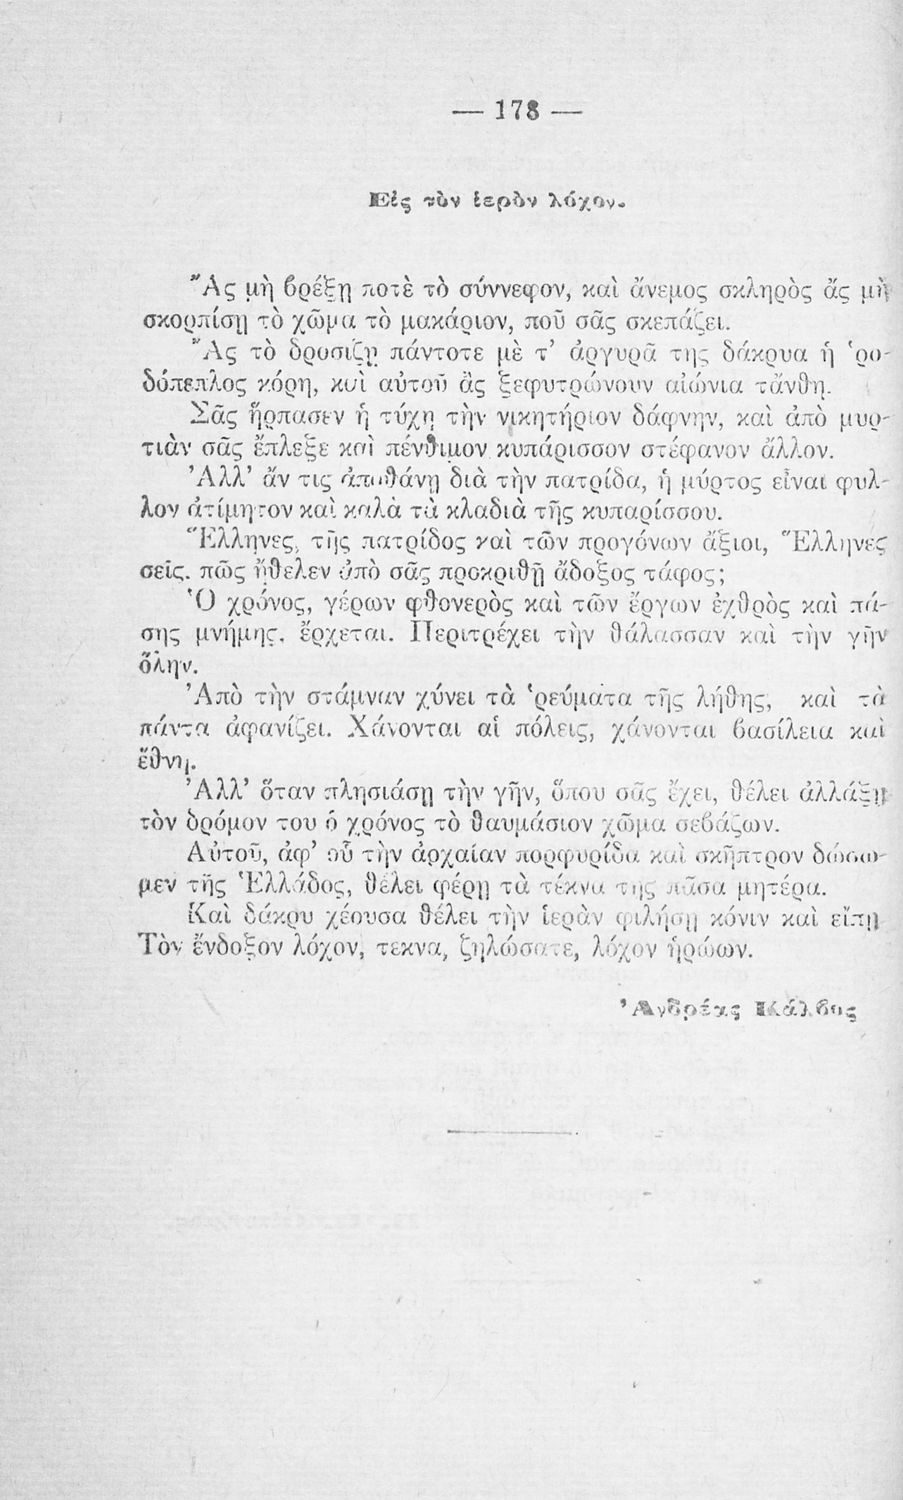 — 178 —
Εἰς τὸν ἱερὸν λόχον.
Ἂς μὴ βρέξῃ ποτὲ τὸ σύννεφον, καὶ ἄνεμος σκληρὸς ἄς μὴ
σκορπίσῃ τὸ χῶμα τὸ μακάριον, ποῦ σᾶς σκεπάζει.
Ἂς τὸ δροσιζῃ πάντοτε μὲ τ’ ἀργυρᾶ της δάκρυα ἡ ῾ρο-
δόπεπλος κόρη, καὶ αὐτοῦ ἂς ξεφυτρώνουν αἰώνια τἄνθη.
Σᾶς ἥρπασεν ἡ τύχη τὴν νικητήριον δάφνην, καὶ ἀπὸ μυρ-
τιὰν σᾶς ἔπλεξε καὶ πένθιμον κυπάρισσον στέφανον ἄλλον.
Ἀλλ’ ἄν τις ἀποθάνῃ διὰ τὴν πατρίδα, ἡ μύρτος εἶναι φυλ-
λον ἀτίμητον καὶ καλὰ τὰ κλαδιὰ τῆς κυπαρίσσου.
Ἕλληνες, τῆς πατρίδος καὶ τῶν προγόνων ἄξιοι, Ἕλληνες
σεῖς. πῶς ἤθελεν ἀπὸ σᾶς προκριθῇ ἄδοξος τάφος;
Ὁ χρόνος, γέρων φθονερὸς καὶ τῶν ἔργων ἐχθρὸς καὶ πά-
σης μνήμης, ἔρχεται. Περιτρέχει τὴν θάλασσαν καὶ τὴν γῆν
ὅλην.
Ἀπὸ τὴν στάμναν χύνει τὰ ῾ρεύματα τῆς λήθης, καὶ τὰ
πάντα ἀφανίζει. Χάνονται αἱ πόλεις, χάνονται βασίλεια καὶ
ἔθνη.
Ἀλλ’ ὅταν πλησιάσῃ τὴν γῆν, ὅπου σᾶς ἔχει, θέλει ἀλλάξῃ
τὸν δρόμον του ὁ χρόνος τὸ θαυμάσιον χῶμα σεβάζων.
Αὐτοῦ, ἀφ’ οὗ τὴν ἀρχαίαν πορφυρίδα καὶ σκῆπτρον δώσω-
μεν τῆς Ἑλλάδος, θέλει φέρῃ τὰ τέκνα της πᾶσα μητέρα.
Καὶ δάκρυ χέουσα θέλει τὴν ἱερὰν φιλήσῃ κόνιν καὶ εἴπῃ
Τὸν ἔνδοξον λόχον, τεκνα, ζηλώσατε, λόχον ἡρώων.
Ἀνδρέας Κάλβος